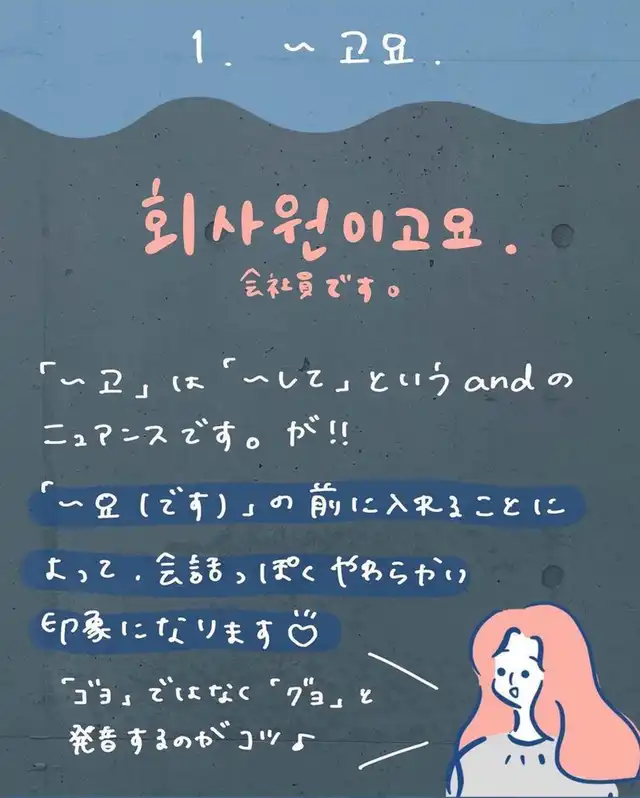 1. ~고요.
회사원이고요.
会社員です。
「~고」は「~して」というandの
ニュアンスです。が!!
「~요(です)」の前に入れることに
よって、会話っぽくやわらかい
印象になります♡
「ゴヨ」ではなく「グヨ」と
発音するのがコツ♪